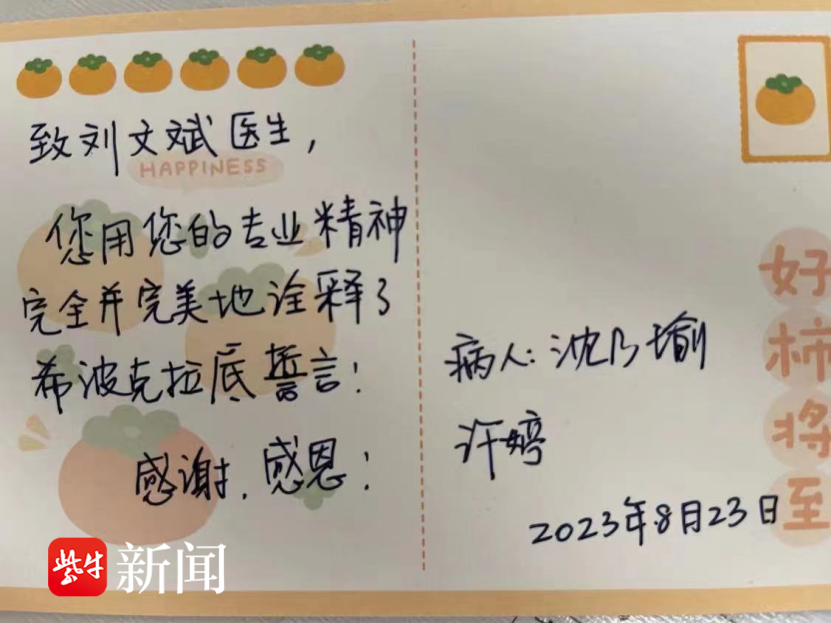 致刘文斌医生,
HAPPINESS
您用您的专业精神
完全并完美地诠释了
希波克拉底誓言!
感谢.感恩!
病人:沈乃瑜
许婷
2023年8月23日
好
柿
将
至
紫牛新闻